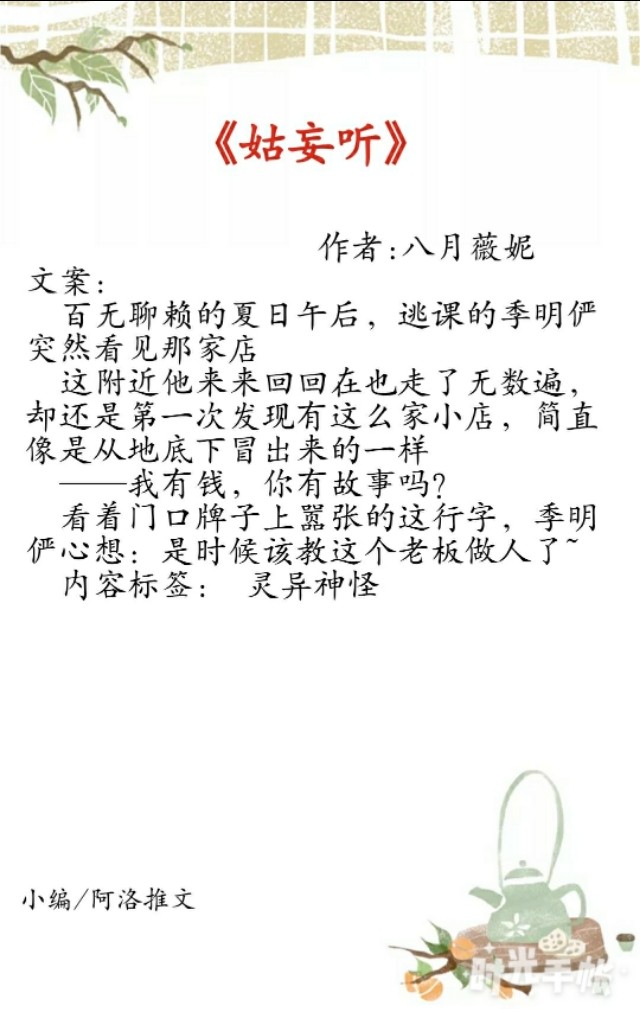 《姑妄听》
作者:八月薇妮
文案：
百无聊赖的夏日午后，逃课的季明俨
突然看见那家店
这附近他来来回回在也走了无数遍，
却还是第一次发现有这么家小店，简直
像是从地底下冒出来的一样
——我有钱，你有故事吗？
看着门口牌子上嚣张的这行字，季明
俨心想：是时候该教这个老板做人了~
内容标签： 灵异神怪
小编/阿洛推文
时光手帐